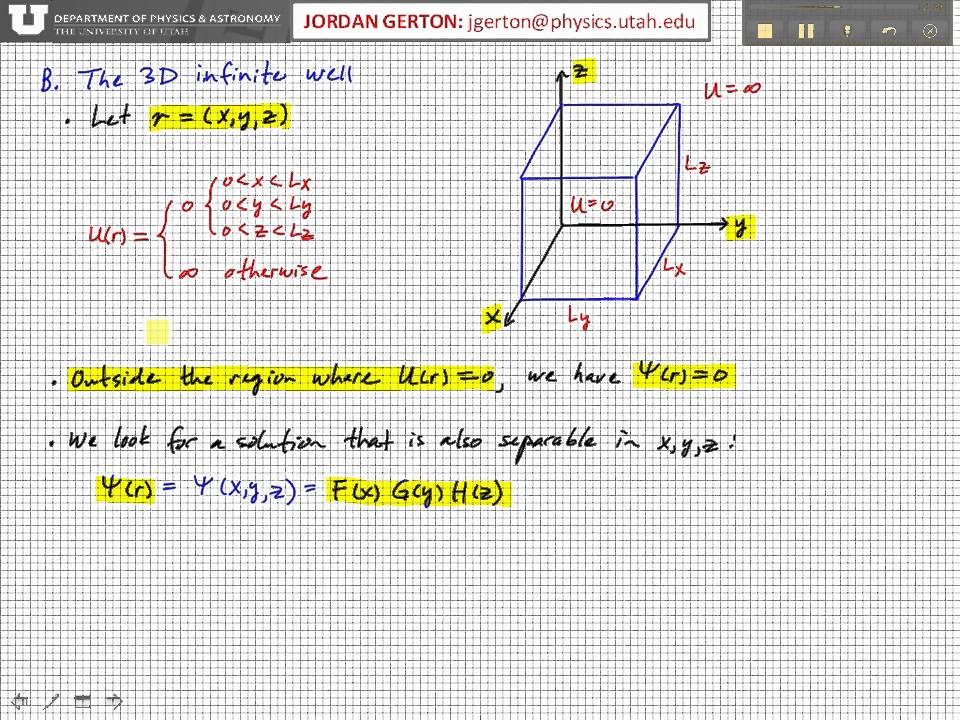 DEPARTMENT OF PHYSICS & ASTRONOMY
THE UNIVERSITY OF UTAH
JORDAN GERTON: jgerton@physics.utah.edu
B. The 3D infinite well
• Let r = (x,y,z)
U(r) = { 0 { 0 < x < Lx
0 < y < Ly
0 < z < Lz
∞ otherwise
z
U = ∞
Lz
U = 0
y
Lx
x
Ly
• Outside the region where U(r) = 0, we have Ψ(r) = 0
• We look for a solution that is also separable in x,y,z:
Ψ(r) = Ψ(x,y,z) = F(x) G(y) H(z)